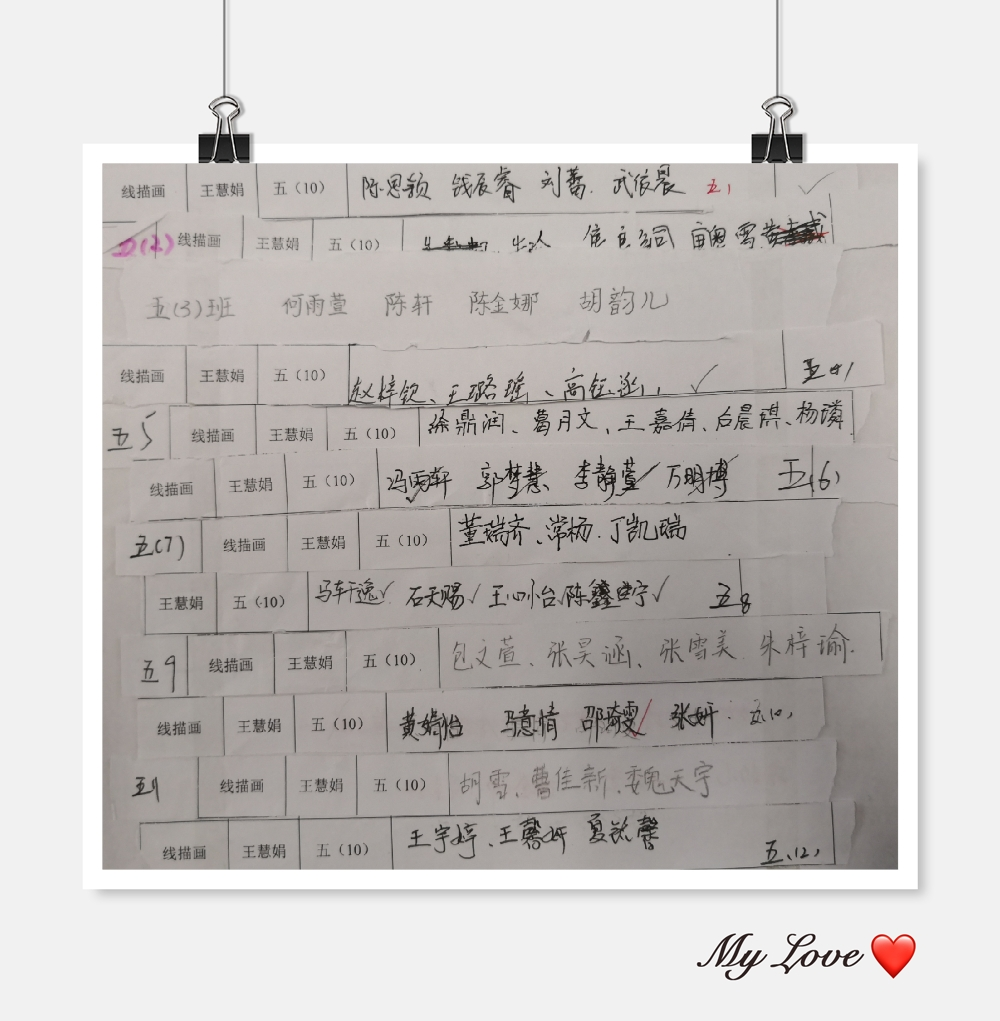 线描画 王慧娟 五（10） 陈思颖 钱辰睿 刘蕾. 武俊晨 五1
五(2) 线描画 王慧娟 五（10）
五(3)班 何雨萱 陈轩 陈金娜 胡韵儿
线描画 王慧娟 五（10） 赵梓钦、王璐瑶、高钰涵 五(4)
五5 线描画 王慧娟 五（10） 徐鼎润、葛月文、王嘉倩、石晨琪、杨璘
线描画 王慧娟 五（10） 冯雨轩 郭梦慧 李静萱 万明博 五(6)
五(7) 线描画 王慧娟 五（10） 董瑞齐、常杨. 丁凯瑞
王慧娟 五（10） 马轩逸 石天赐 王心怡 陈鑫宇 五8
五9 线描画 王慧娟 五（10） 包文萱、张昊涵、张雪美 朱梓瑜.
线描画 王慧娟 五（10） 黄娟怡 马意情 邵琦雯 张妍 五(10)
五11 线描画 王慧娟 五（10） 胡雪、曹佳新、魏天宇
线描画 王慧娟 五（10） 王宇婷、王馨妍 夏懿馨 五(12)
My Love